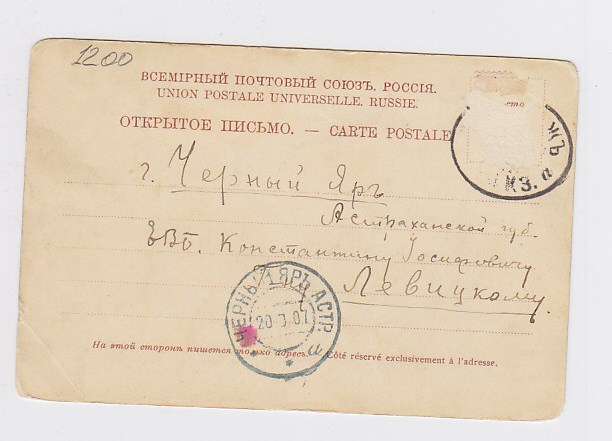 1200
ВСЕМІРНЫЙ ПОЧТОВЫЙ СОЮЗЪ. РОССІЯ.
UNION POSTALE UNIVERSELLE. RUSSIE.
ОТКРЫТОЕ ПИСЬМО. — CARTE POSTALE
г. Черный Яръ
Астраханской губ.
ЕВБ. Константину Іосифовичу
Левицкому.
ЧЕРНЫ ЯРЪ АСТР.
20 3 07
а
На этой сторонѣ пишется только адресъ. Côté réservé exclusivement à l'adresse.
ЖЪ
КЗ. а